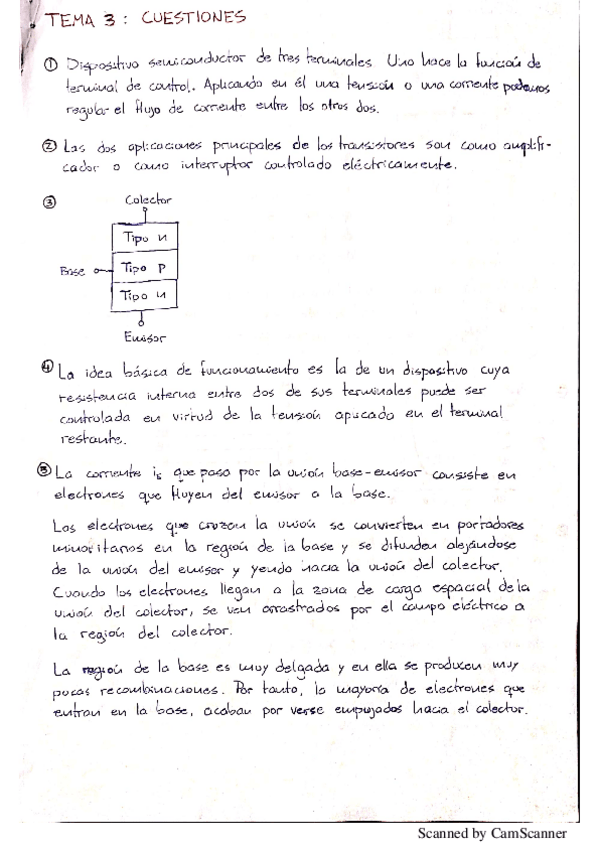 TEMA 3 : CUESTIONES
① Dispositivo semiconductor de tres terminales Uno hace la función de
terminal de control. Aplicando en él una tensión o una corriente podemos
regular el flujo de corriente entre los otros dos.
② Las dos aplicaciones principales de los transistores son como amplifi-
cador o como interruptor controlado eléctricamente.
③ Colector
Tipo n
Base Tipo p
Tipo n
Emisor
④ La idea básica de funcionamiento es la de un dispositivo cuya
resistencia interna entre dos de sus terminales puede ser
controlada en virtud de la tensión aplicado en el terminal
restante.
⑤ La corriente iE que pasa por la unión base-emisor consiste en
electrones que fluyen del emisor a la base.
Los electrones que cruzan la unión se convierten en portadores
minoritarios en la región de la base y se difunden alejándose
de la unión del emisor y yendo hacia la unión del colector.
Cuando los electrones llegan a la zona de carga espacial de la
unión del colector, se ven arrastrados por el campo eléctrico a
la región del colector.
La región de la base es muy delgada y en ella se producen muy
pocas recombinaciones. Por tanto, la mayoría de electrones que
entran en la base, acaban por verse empujados hacia el colector.
Scanned by CamScanner